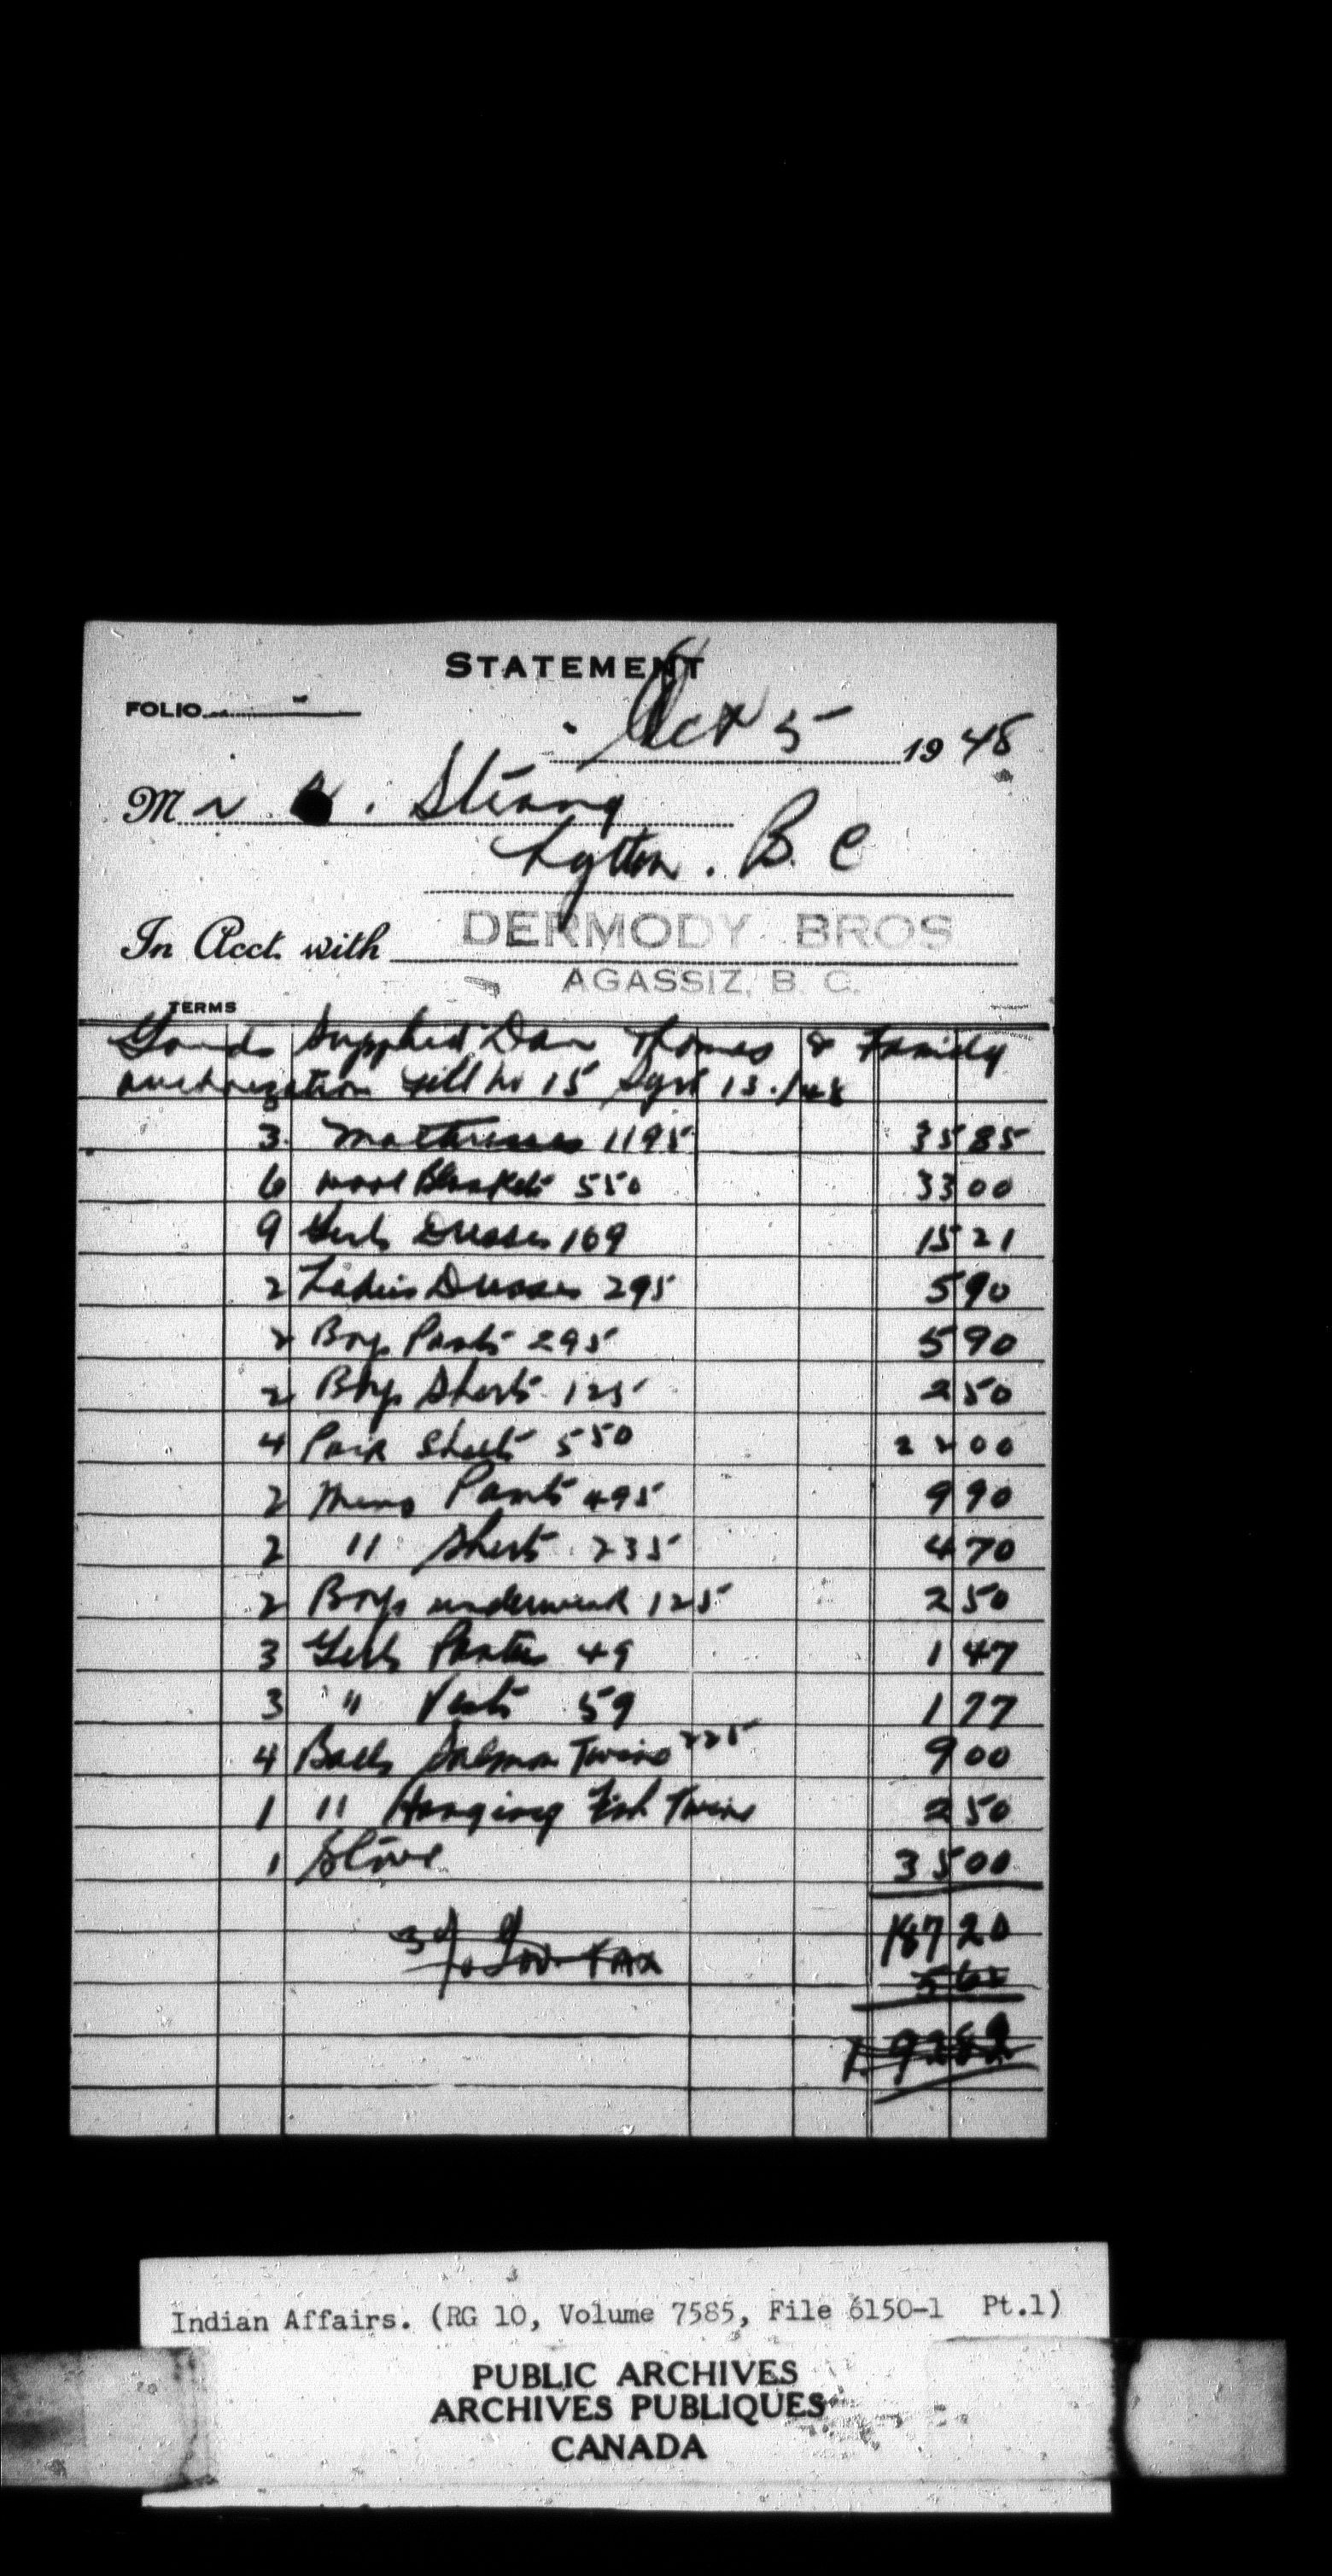 STATEMENT
FOLIO
Oct 5 1948
Mr . Strang
Lytton. B. C
In Acct. with DERMODY BROS
AGASSIZ, B. C.
TERMS
Goods Supplied Dan Thomas & Family
authorization 15 Sept 13. /48
3 Mattresses 1195 35 85
6 wool Blankets 550 33 00
9 Girls Dresses 169 15 21
2 Ladies Dresses 295 5 90
2 Boys Pants 295 5 90
2 Boys Shirts 125 2 50
4 Pair Sheets 550 22 00
2 Mens Pants 495 9 90
2 " Shirts 235 4 70
2 Boys underwear 125 2 50
3 Girls Panties 49 1 47
3 " Vests 59 1 77
4 Balls Salmon Twine 225 9 00
1 " Hanging Fish Twine 2 50
1 Stove 35 00
187 20
3% Gov Tax 5 62
192 82
Indian Affairs. (RG 10, Volume 7585, File 6150-1 Pt.1)
PUBLIC ARCHIVES
ARCHIVES PUBLIQUES
CANADA